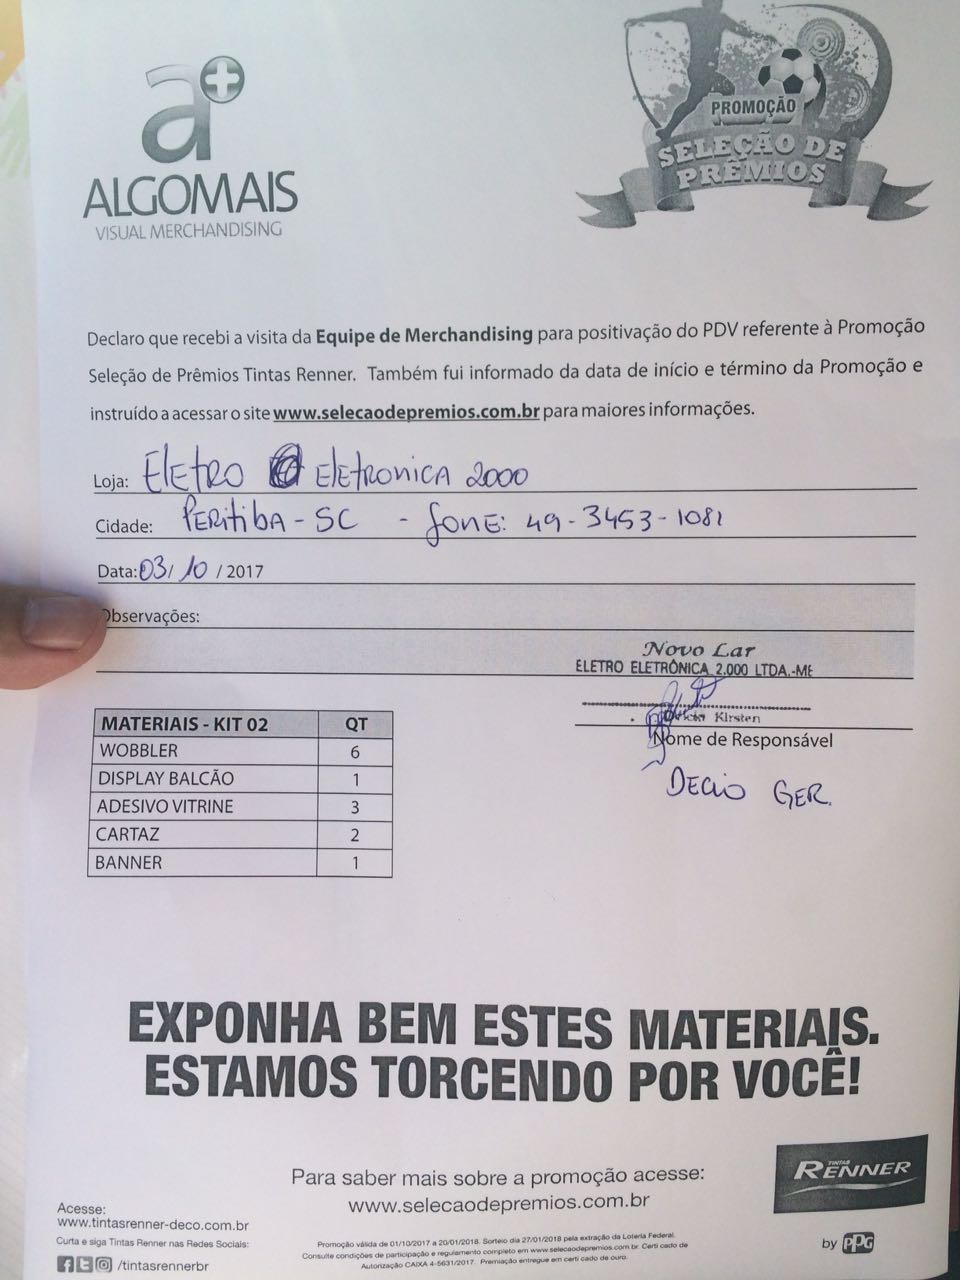 a+
ALGOMAIS
VISUAL MERCHANDISING
PROMOÇÃO
SELEÇÃO DE
PRÊMIOS
Declaro que recebi a visita da Equipe de Merchandising para positivação do PDV referente à Promoção
Seleção de Prêmios Tintas Renner. Também fui informado da data de início e término da Promoção e
instruído a acessar o site www.selecaodepremios.com.br para maiores informações.
Loja: Eletro Eletronica 2000
Cidade: Peritiba - SC - fone: 49-3453-1081
Data: 03/10/2017
Observações:
Novo Lar
ELETRO ELETRÔNICA 2.000 LTDA.-ME
Kirsten
Nome de Responsável
Decio Ger.
MATERIAIS - KIT 02 QT
WOBBLER 6
DISPLAY BALCÃO 1
ADESIVO VITRINE 3
CARTAZ 2
BANNER 1
EXPONHA BEM ESTES MATERIAIS.
ESTAMOS TORCENDO POR VOCÊ!
Para saber mais sobre a promoção acesse:
www.selecaodepremios.com.br
TINTAS
RENNER
by PPG
Acesse:
www.tintasrenner-deco.com.br
Curta e siga Tintas Renner nas Redes Sociais:
/tintasrennerbr
Promoção válida de 01/10/2017 a 20/01/2018. Sorteio dia 27/01/2018 pela extração da Loteria Federal.
Consulte condições de participação e regulamento completo em www.selecaodepremios.com.br. Certi cado de
Autorização CAIXA 4-5631/2017. Premiação entregue em certi cado de ouro.